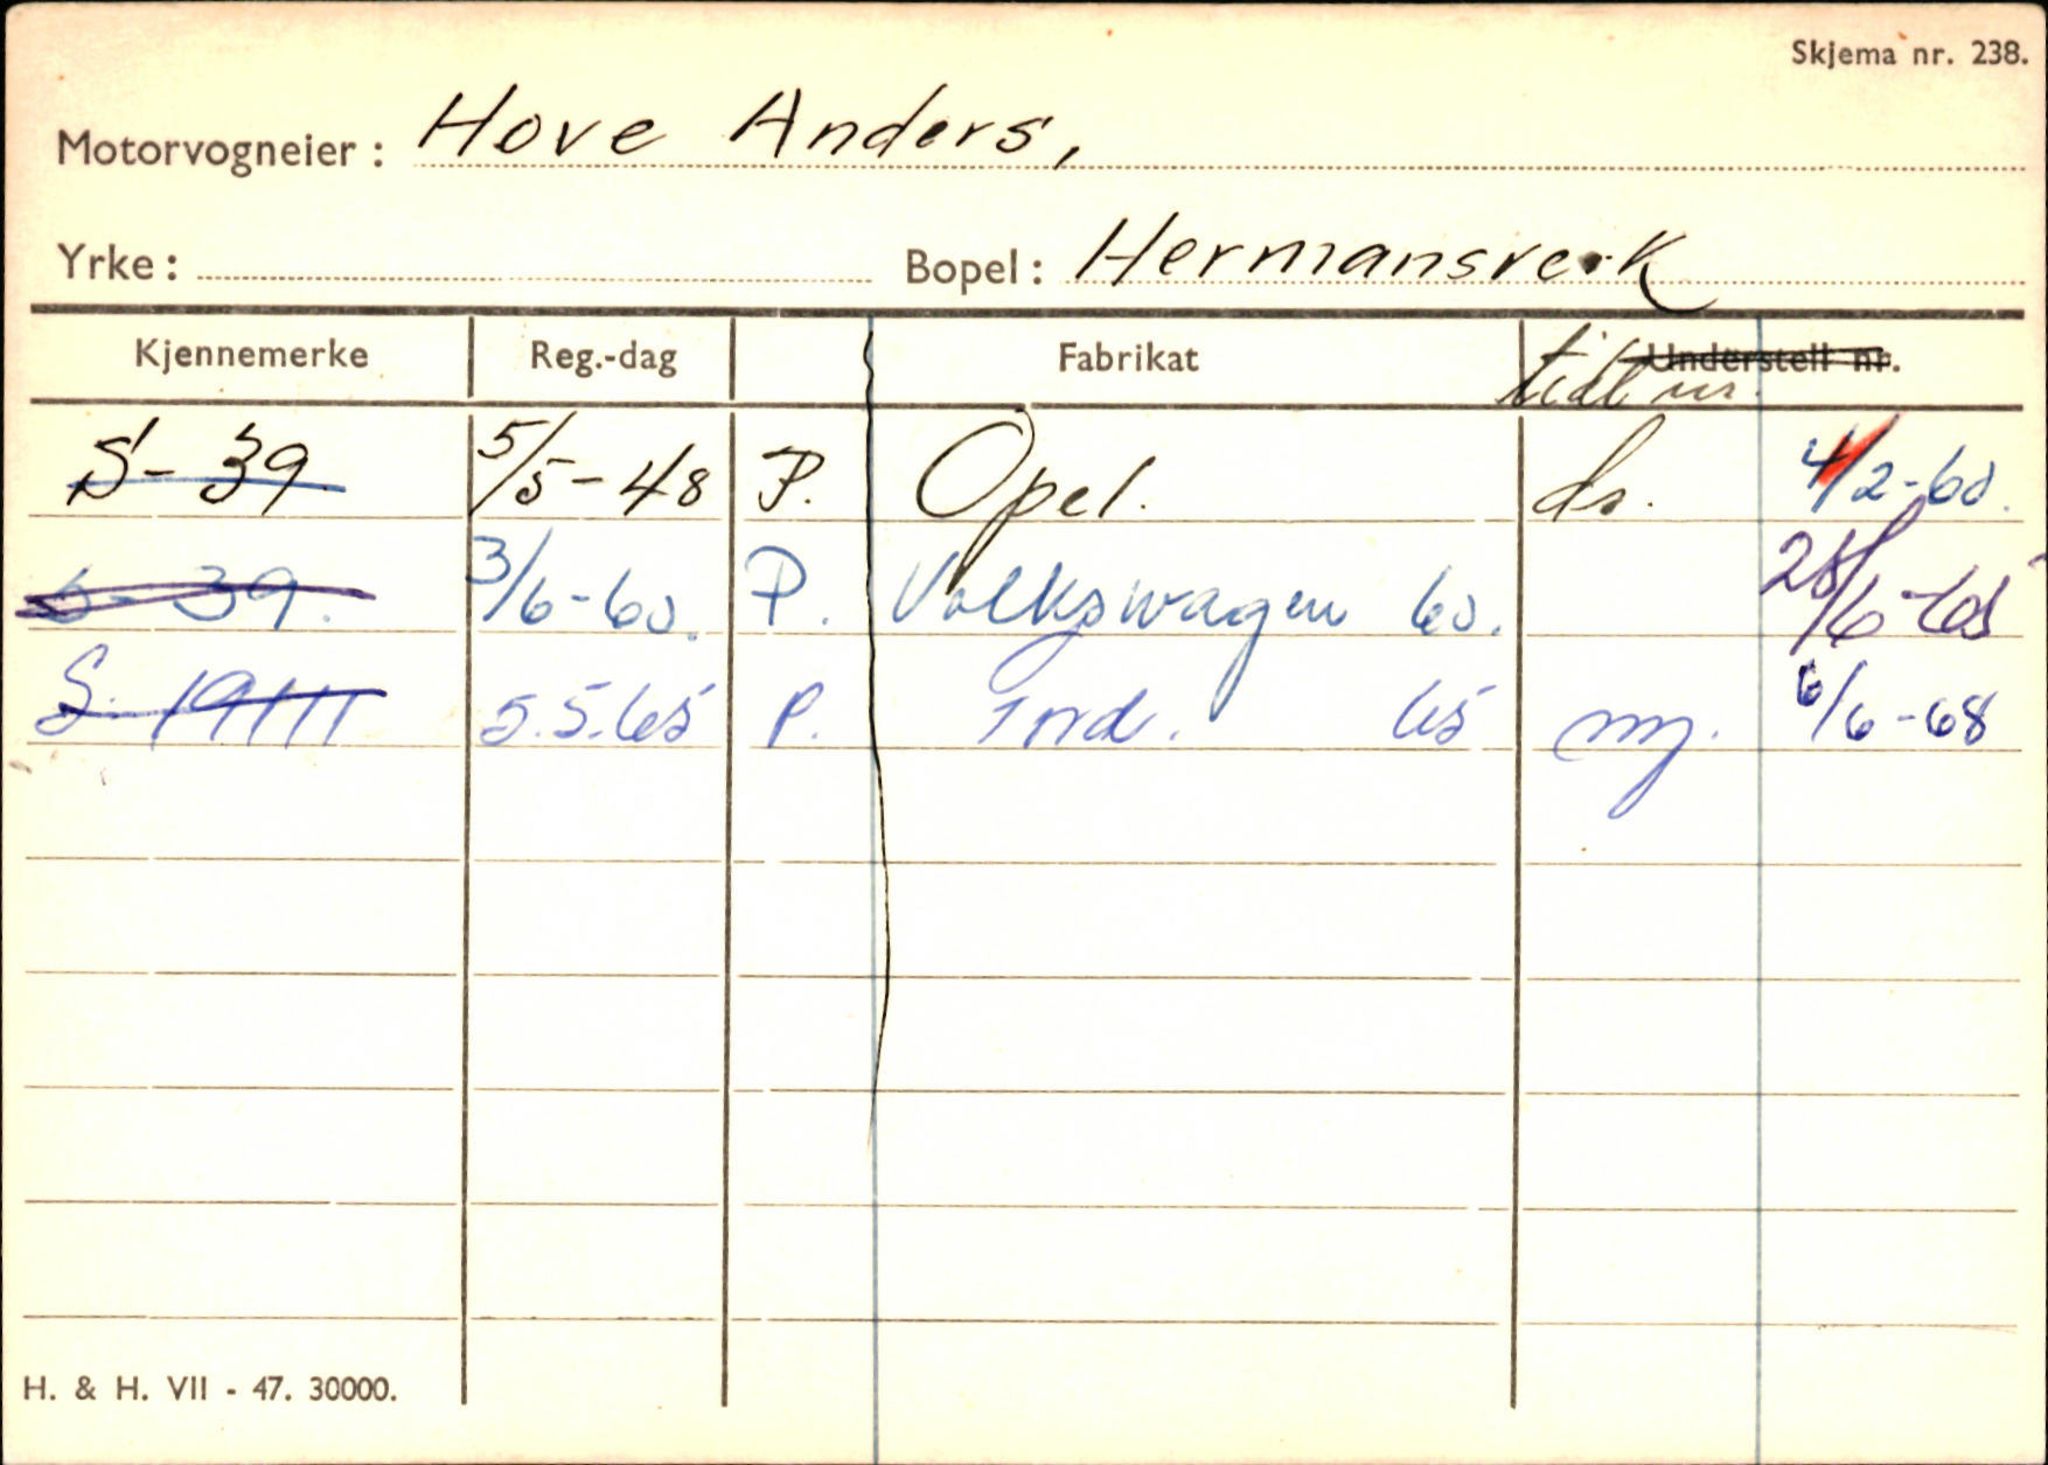 Skjema nr. 238.
Motorvogneier: Hove Anders,
Yrke: Bopel: Hermansverk
Kjennemerke Reg.-dag Fabrikat Understell nr.
S-39 5/5-48 P. Opel. do. 4/2-60.
S-39. 3/6-60. P. Volkswagen 60. 28/6-65
S-19111 5.5.65 P. Ford. 65 ny. 6/6-68
H. & H. VII - 47. 30000.